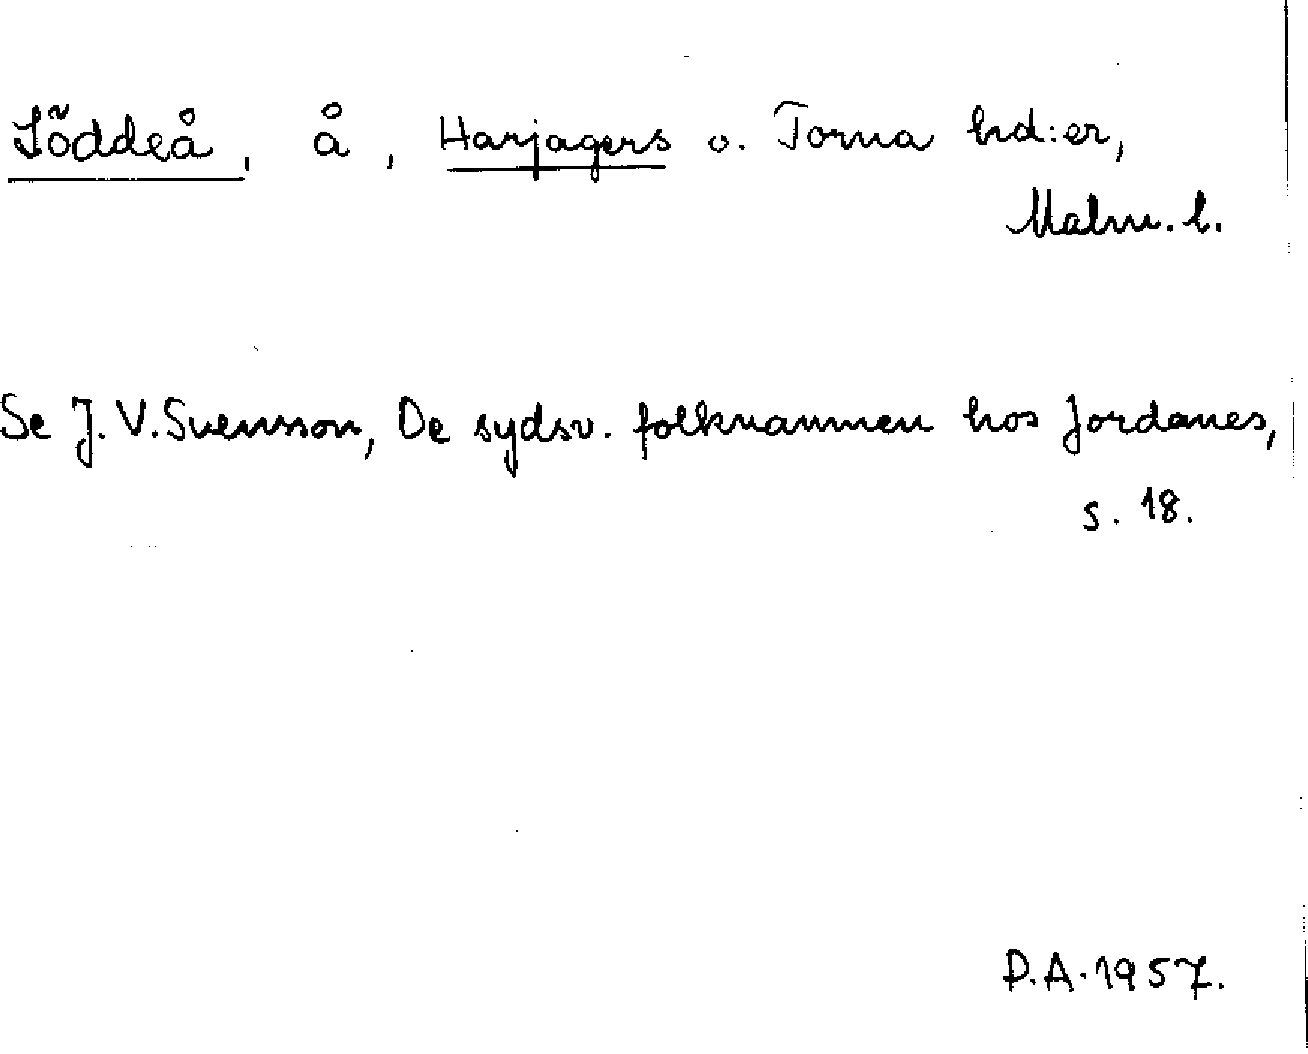 Löddeå, å, Harjagers o. Torna hd:er,
Malm. l.
Se J. V. Svensson, De sydsv. folknamnen hos Jordanes,
s. 18.
D.A. 1957.